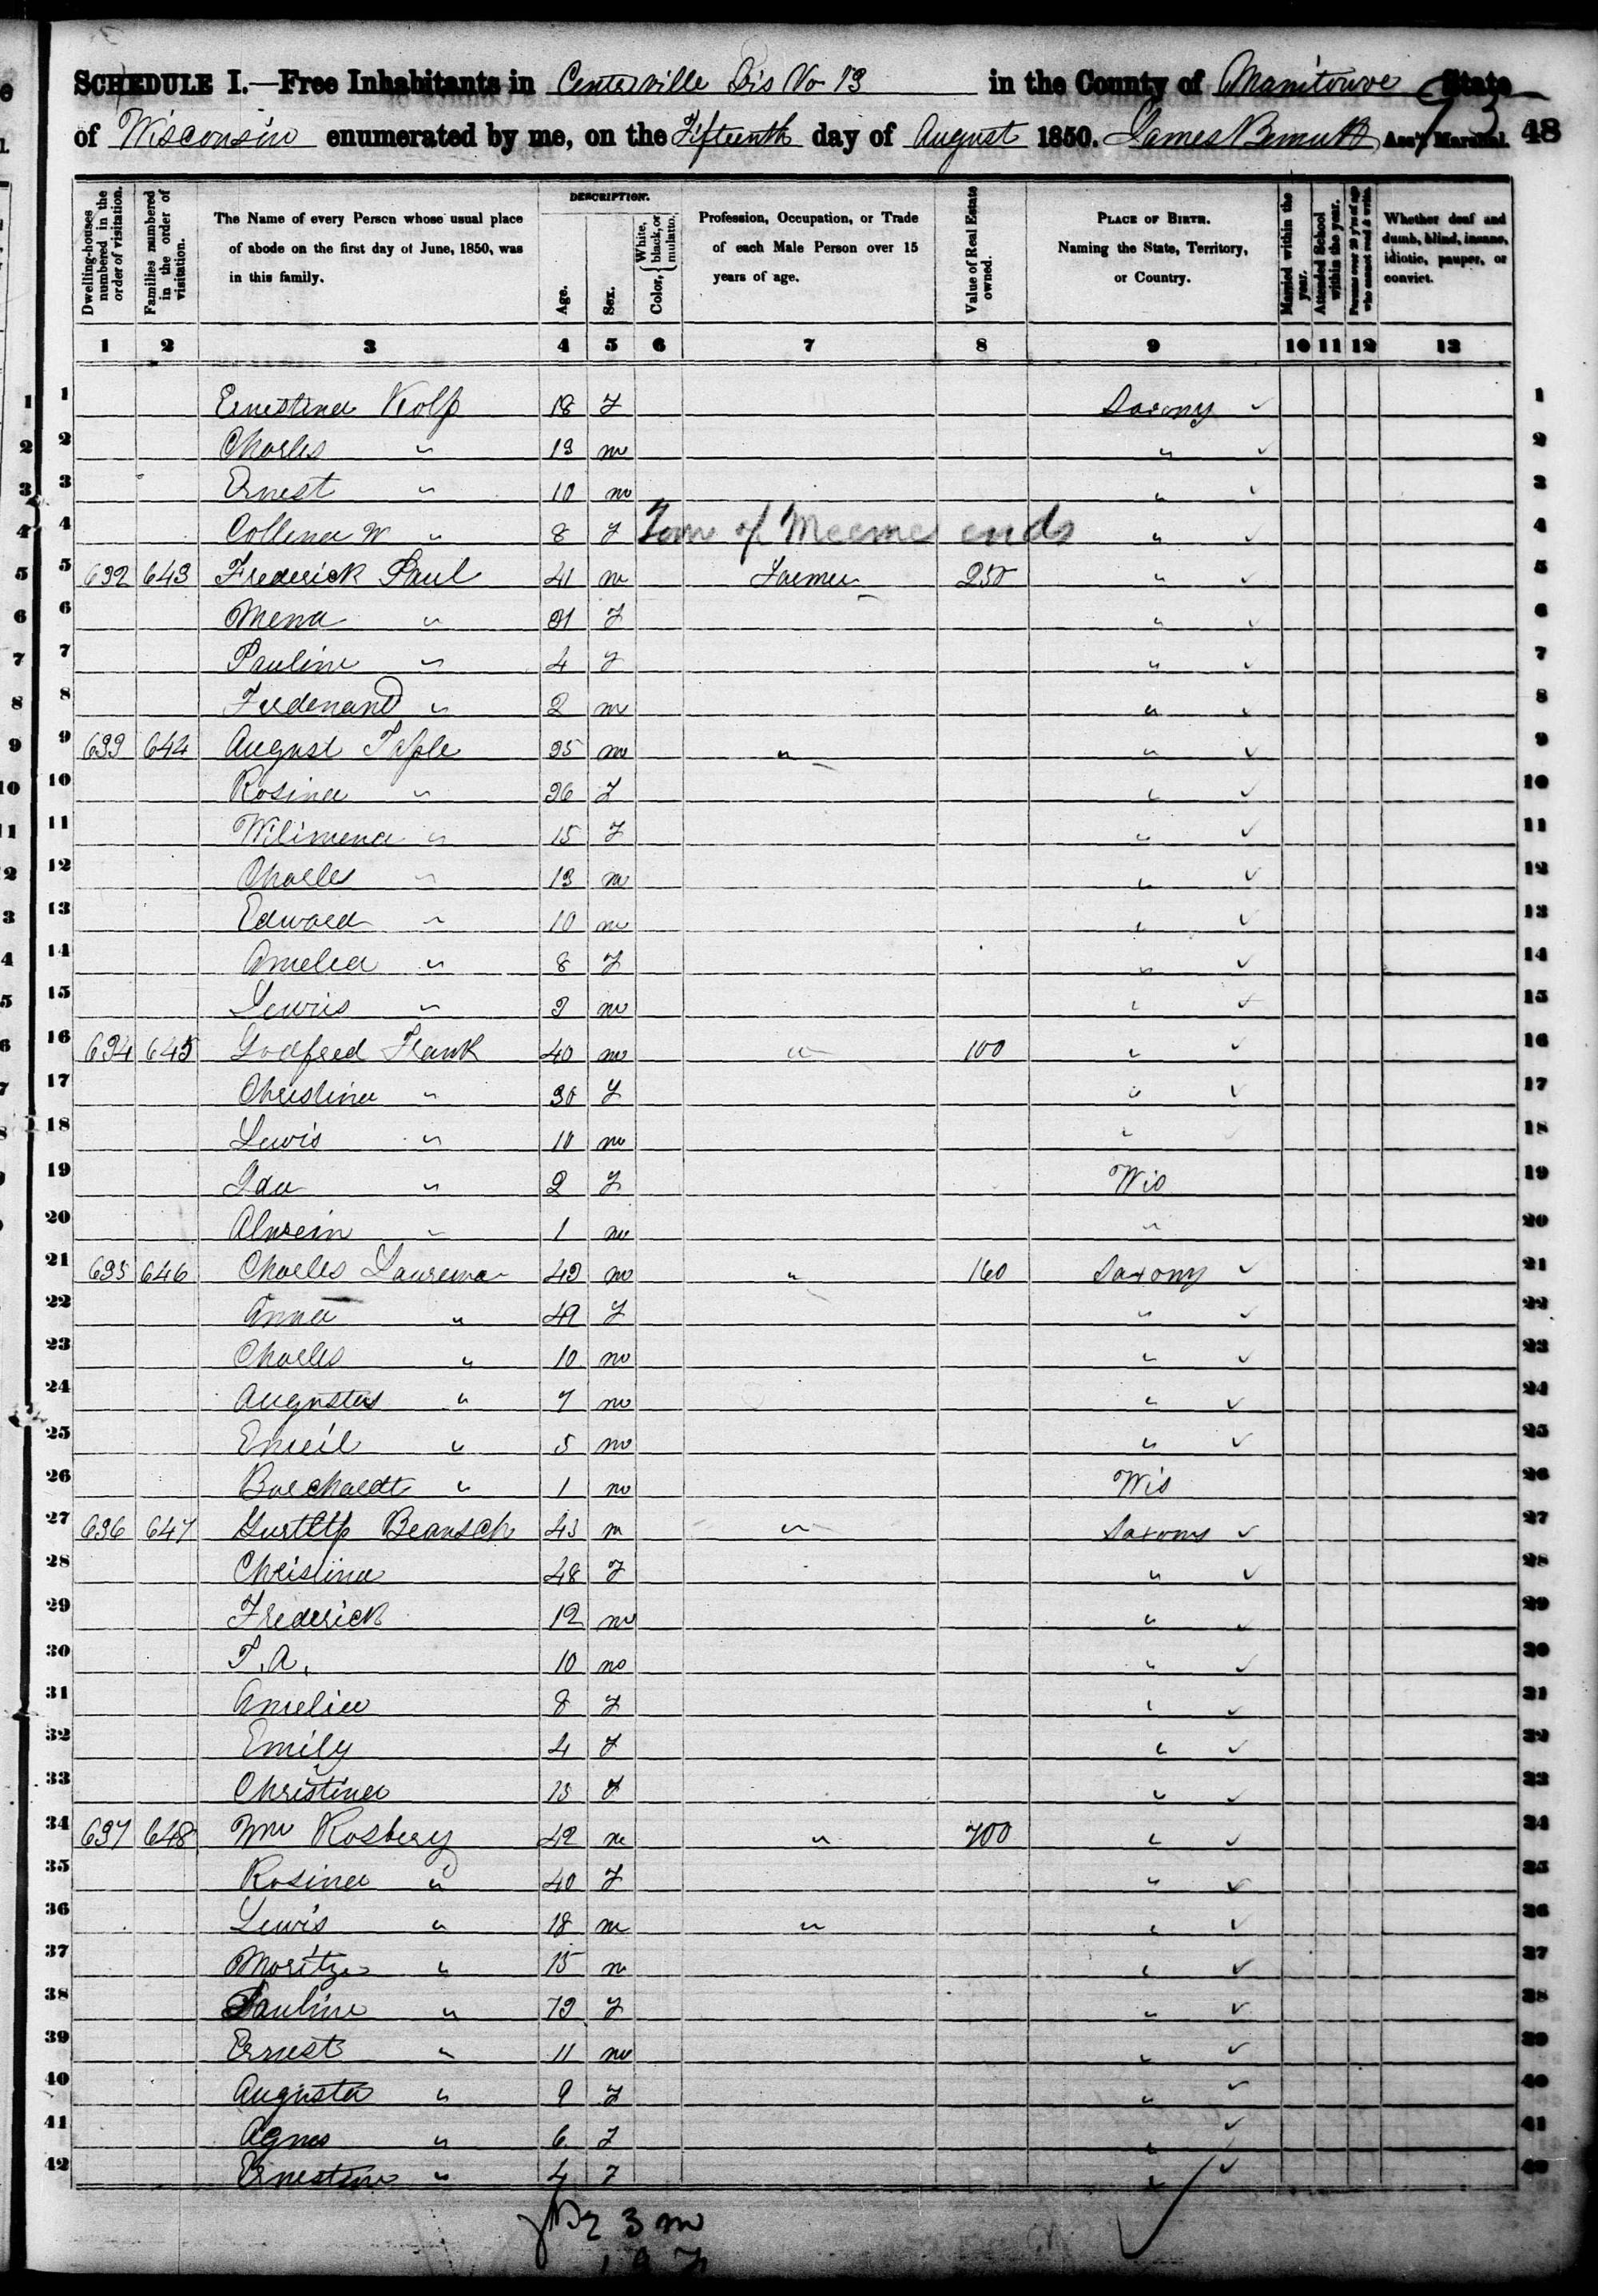 SCHEDULE I.—Free Inhabitants in Centerville Dis No 13 in the County of Manitowoc State
of Wisconsin enumerated by me, on the Fifteenth day of August 1850. James Ass't Marshal. 48
Dwelling-houses numbered in the order of visitation.
Families numbered in the order of visitation.
The Name of every Person whose usual place of abode on the first day of June, 1850, was in this family.
DESCRIPTION.
Age.
Sex.
Color, { White, black, or mulatto.
Profession, Occupation, or Trade of each Male Person over 15 years of age.
Value of Real Estate owned.
PLACE OF BIRTH. Naming the State, Territory, or Country.
Married within the year.
Attended School within the year.
Persons over 20 y'rs of age who cannot read & write.
Whether deaf and dumb, blind, insane, idiotic, pauper, or convict.
1 2 3 4 5 6 7 8 9 10 11 12 13
1 Ernestina Kolp 18 F Saxony ✓ 1
2 Charles " 13 m " ✓ 2
3 Ernest " 10 m " ✓ 3
4 W " 8 F Town of Meeme ends " ✓ 4
5 692 643 Frederick Paul 41 m Farmer 250 " ✓ 5
6 Mena " 31 F " ✓ 6
7 Pauline " 4 F " ✓ 7
8 Ferdenand " 2 m " ✓ 8
9 693 644 August 35 m " " ✓ 9
10 Rosina " 36 F " ✓ 10
11 Wilimena " 15 F " ✓ 11
12 Charles " 13 m " ✓ 12
13 Edward " 10 m " ✓ 13
14 Amelia " 8 F " ✓ 14
15 Lewis " 3 m " ✓ 15
16 694 645 Godfred Frank 40 m " 100 " ✓ 16
17 Christina " 30 F " ✓ 17
18 Lewis " 10 m " ✓ 18
19 Ida " 2 F Wis 19
20 " 1 m " 20
21 695 646 Charles 43 m " 160 Saxony ✓ 21
22 Anna " 42 F " ✓ 22
23 Charles " 10 m " ✓ 23
24 Augustus " 7 m " ✓ 24
25 Emeil " 5 m " ✓ 25
26 Borchardt " 1 m Wis 26
27 696 647 43 m " Saxony ✓ 27
28 Christina 48 F " ✓ 28
29 Frederick 12 m " ✓ 29
30 F. A. 10 m " ✓ 30
31 Amelia 8 F " ✓ 31
32 Emily 4 F " ✓ 32
33 Christina 15 F " ✓ 33
34 697 648 Wm Rosberg 42 m " 700 " ✓ 34
35 Rosina " 40 F " ✓ 35
36 Lewis " 18 m " " ✓ 36
37 Moritz " 15 m " ✓ 37
38 Pauline " 13 F " ✓ 38
39 Ernest " 11 m " ✓ 39
40 Augusta " 9 F " ✓ 40
41 Agnes " 6 F " ✓ 41
42 Ernestine " 4 F " ✓ 42
23 m
19 F